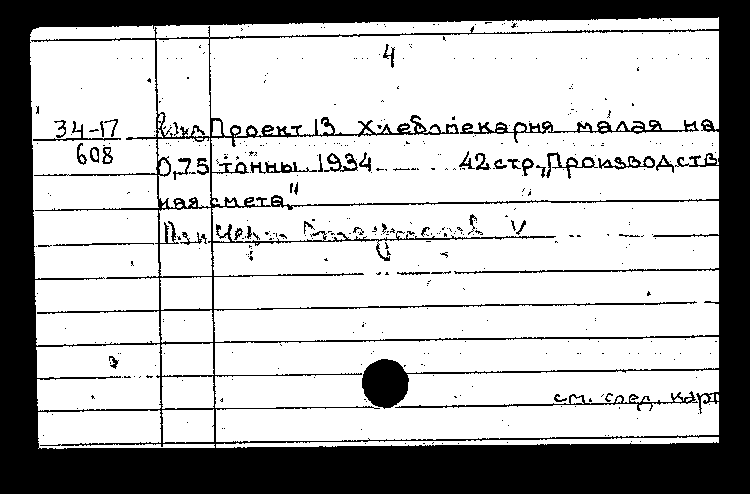 4
34-17 Проект 13. Хлебопекарня малая на
608
0,75 тонны 1934 42 стр. „Производств
ная смета."
Черт V
см. след. карт